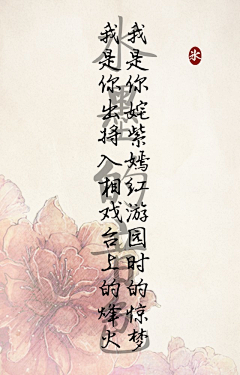 我是你姹紫嫣红游园时的惊梦
我是你出将入相戏台上的烽火